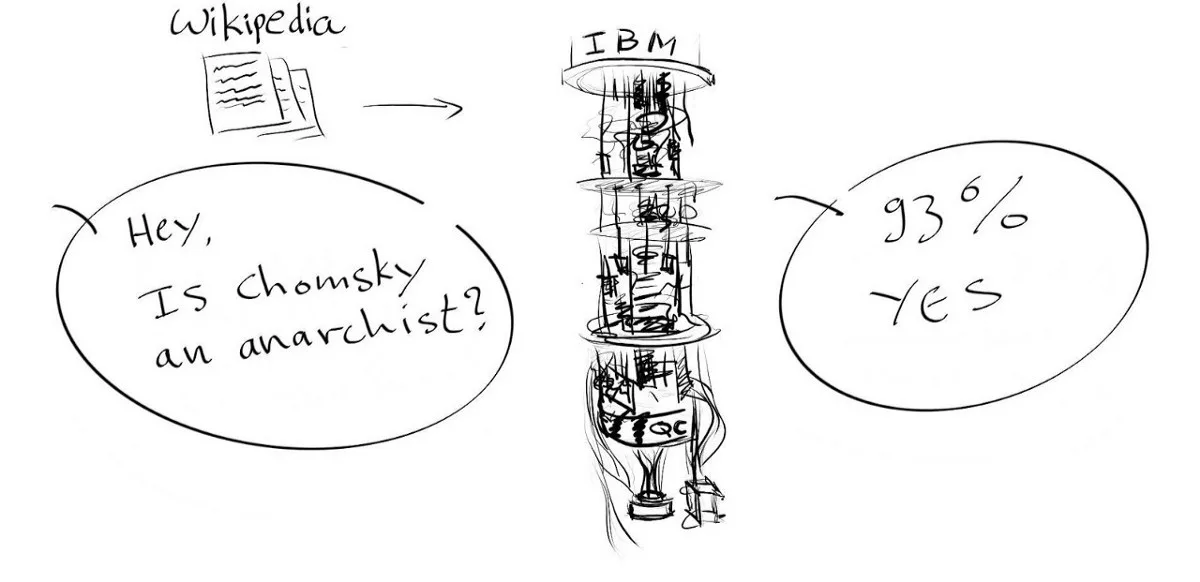 Wikipedia
IBM
Hey,
Is Chomsky
an anarchist?
93%
YES
QC